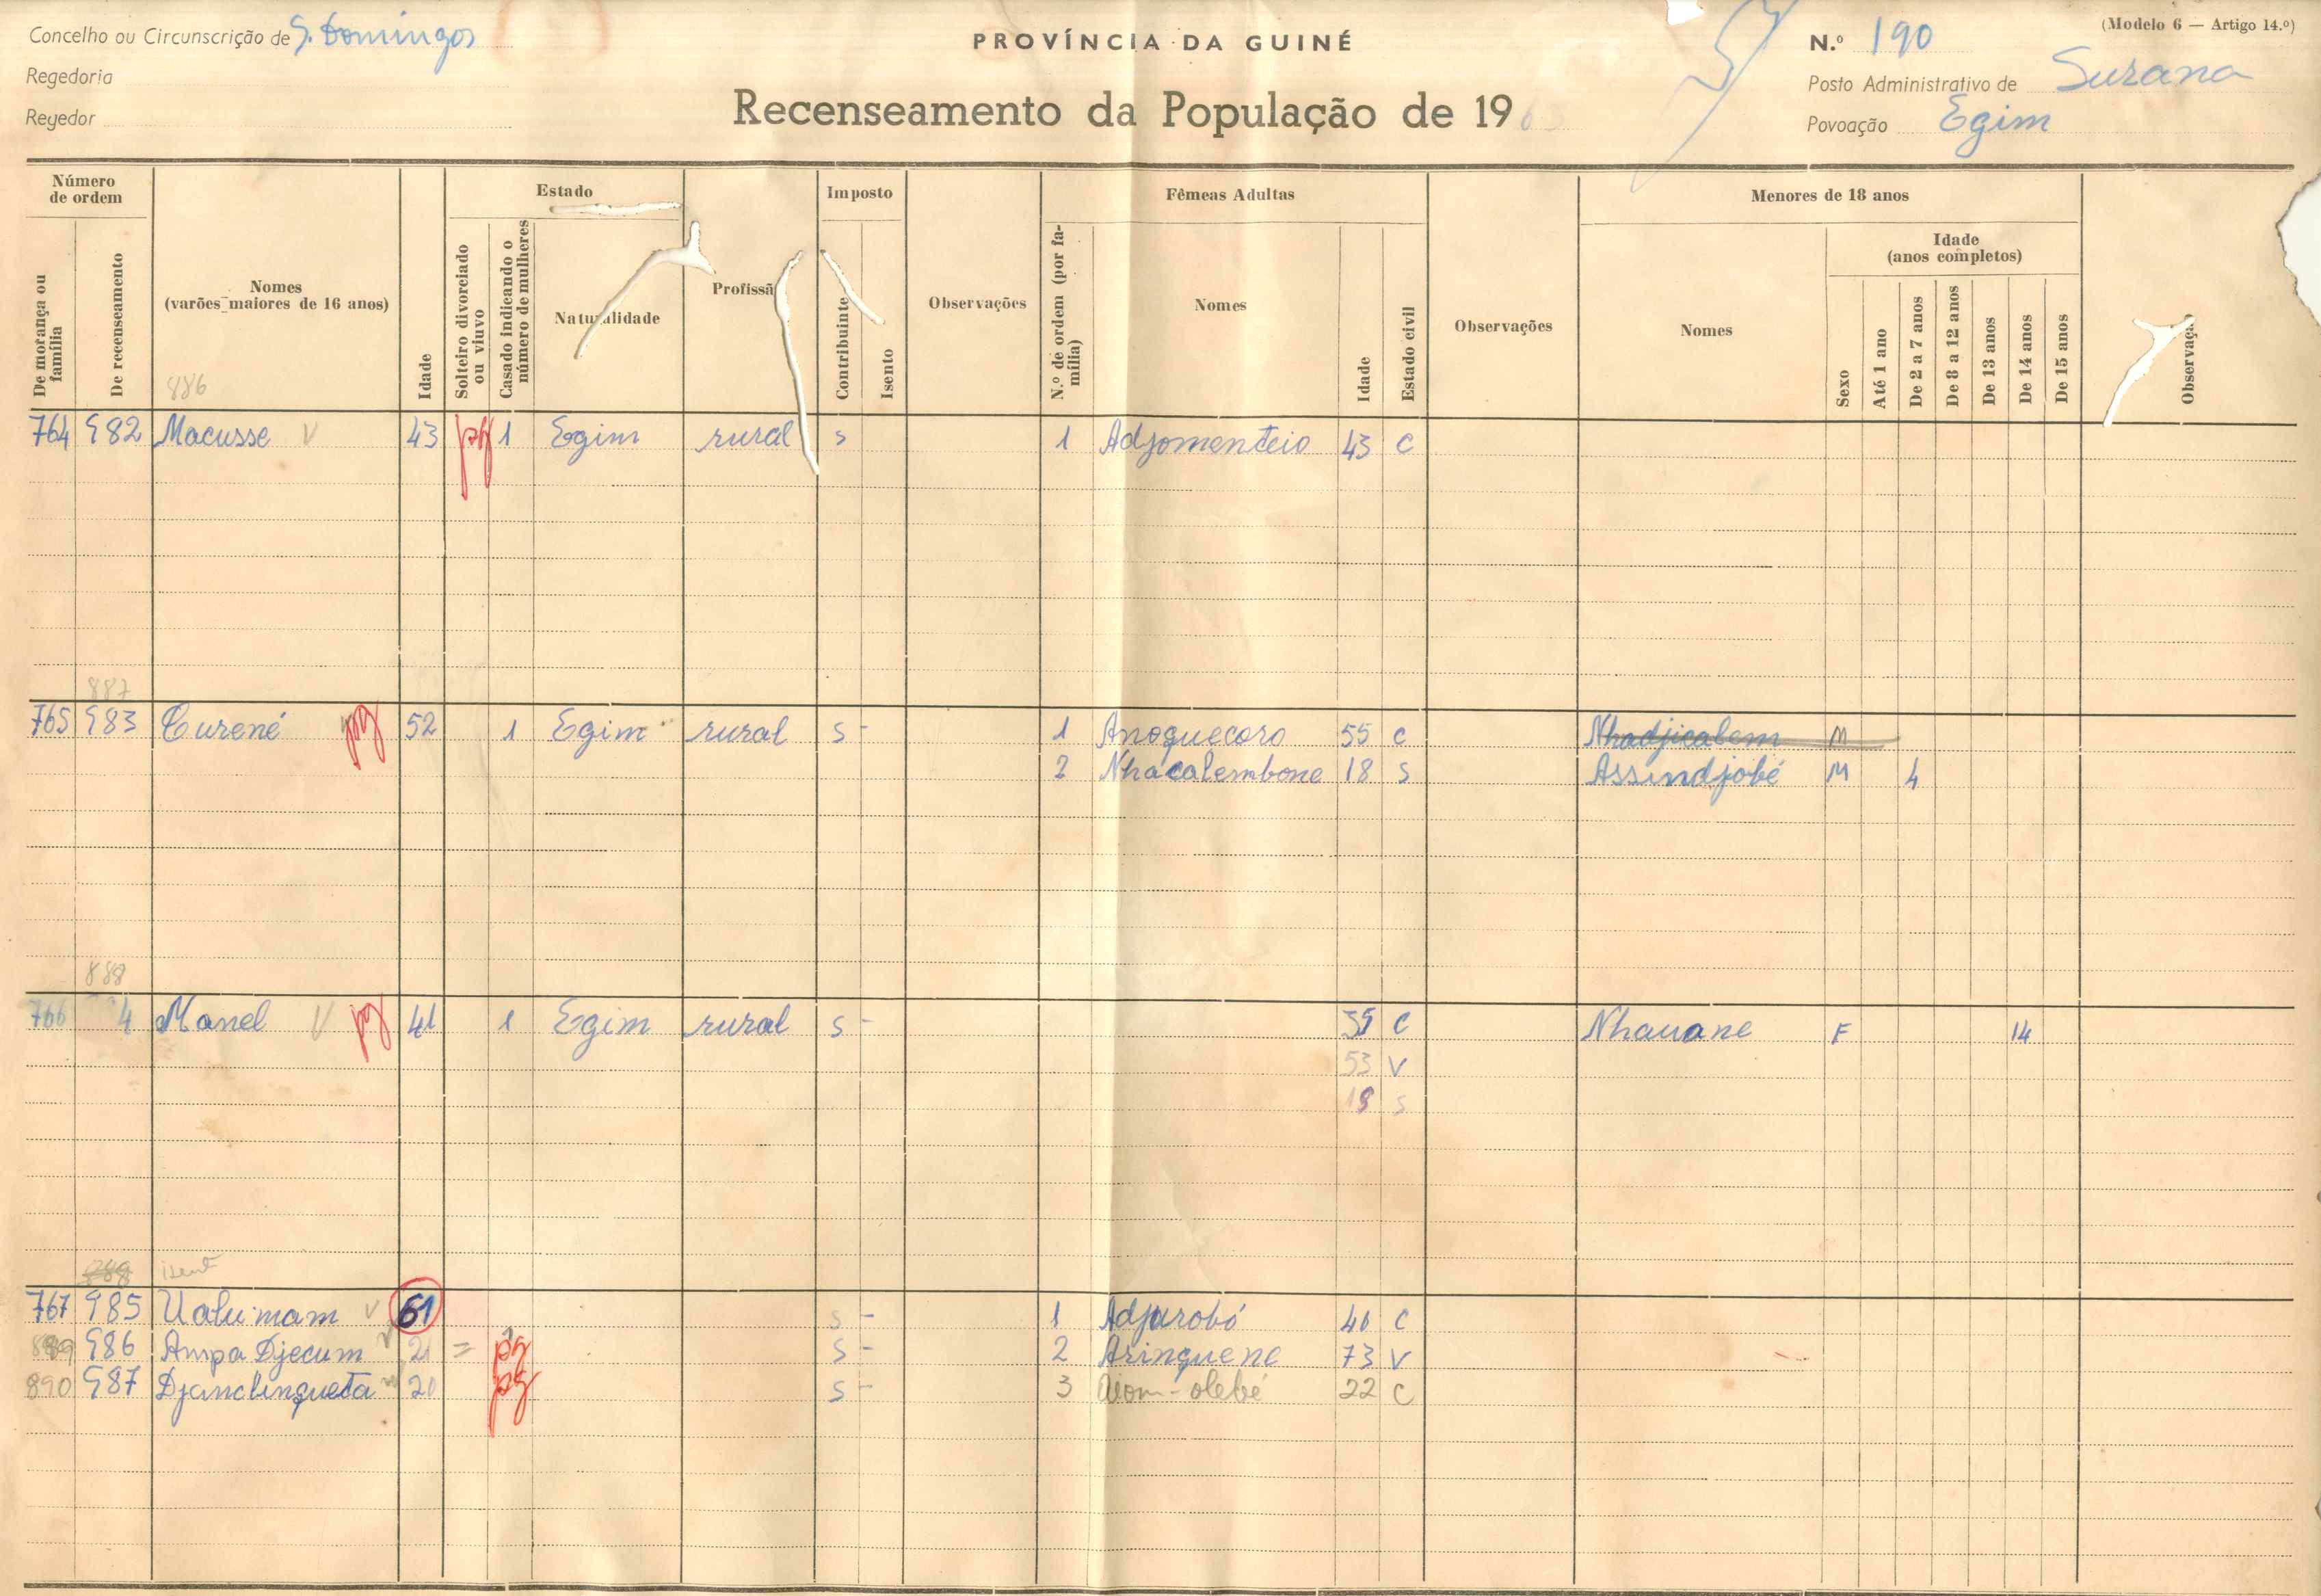 Concelho ou Circunscrição de S. Domingos
PROVÍNCIA DA GUINÉ
N.º 190
(Modelo 6 — Artigo 14.º)
Regedoria
Posto Administrativo de Surana
Regedor
Recenseamento da População de 196
Povoação Egim
Número de ordem
De morança ou família
De recenseamento
Nomes
(varões maiores de 16 anos)
Idade
Estado
Solteiro divorciado ou viuvo
Casado indicando o número de mulheres
Naturalidade
Profissã
Imposto
Contribuinte
Isento
Observações
Fêmeas Adultas
N.º de ordem (por família)
Nomes
Idade
Estado civil
Observações
Menores de 18 anos
Nomes
Idade
(anos completos)
Sexo
Até 1 ano
De 2 a 7 anos
De 8 a 12 anos
De 13 anos
De 14 anos
De 15 anos
Observaçã
886
764 982 Macusse V 43 pg 1 Egim rural s 1 Adjomenteio 43 C
887
765 983 Curené pg 52 1 Egim rural s - 1 Anoquecoro 55 C Nhadjicalem M
2 Nhacalembone 18 S Assindjobé M 4
888
766 4 Manel V pg 41 1 Egim rural s - C Nhauane F 14
53 V
S
isent
767 985 Ualumam V 61 s - 1 Adjurobó C
889 986 Ampa Djecum V 21 = pg s - 2 Arinquene 73 V
890 987 Djanclinqueta 20 pg s - 3 22 C